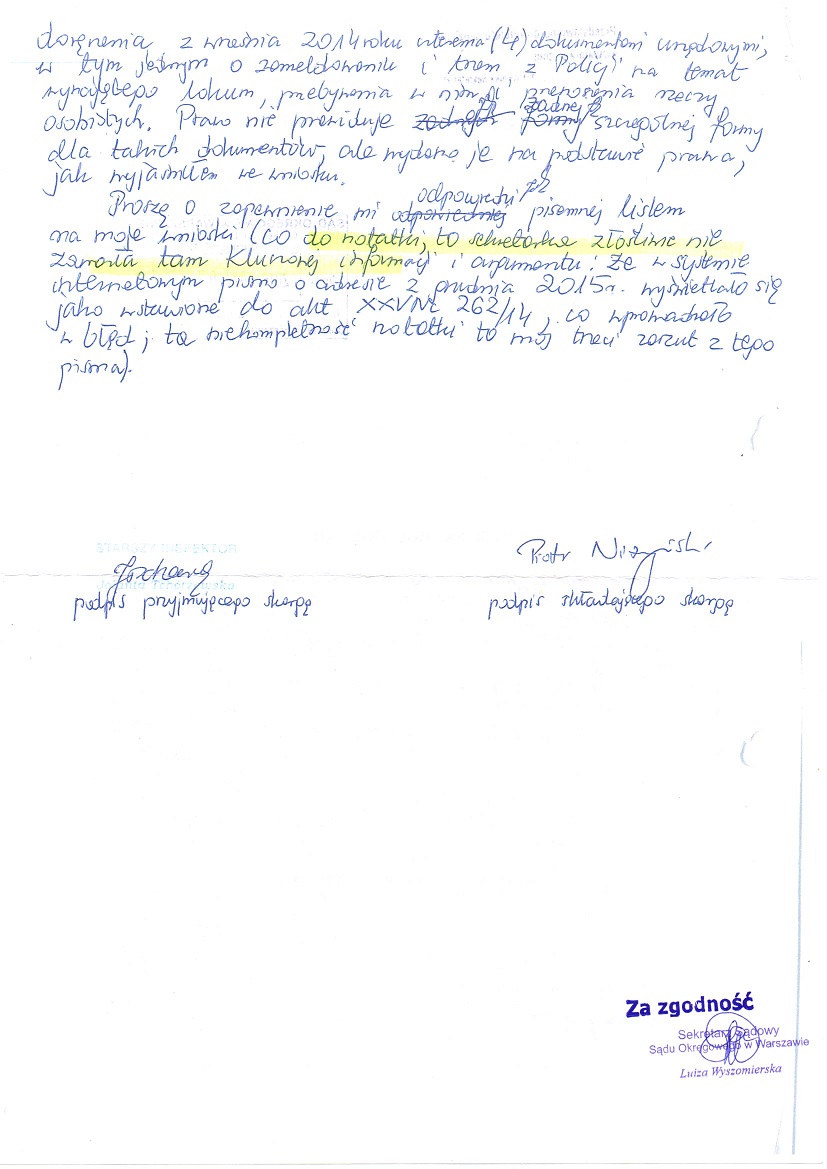 doręczenia z września 2014 roku czterema (4) dokumentami urzędowymi,
w tym jednym o zameldowaniu i trzem z Policji na temat
wynajętego lokum, przebywania w nim i przenoszenia rzeczy
osobistych. Prawo nie przewiduje żadnej szczególnej formy
dla takich dokumentów, ale wydano je na podstawie prawa,
jak wyjaśniłem we wniosku.
Proszę o zapewnienie mi odpowiedzi pisemnej listem
na moje wnioski (co do notatki, to sekretarka złośliwie nie
zawarła tam kluczowej informacji i argumentu: że w systemie
internetowym pismo o adresie z grudnia 2015r. wyświetlało się
jako wstawione do akt XXVNc 262/14, co wprowadzało
w błąd; ta niekompletność notatki to mój trzeci zarzut z tego
pisma).
STARSZY INSPEKTOR
Piotr Niżyński
podpis przyjmującego skargę
podpis składającego skargę
Za zgodność
Sekretarz Sądowy
Sądu Okręgowego w Warszawie
Luiza Wyszomierska